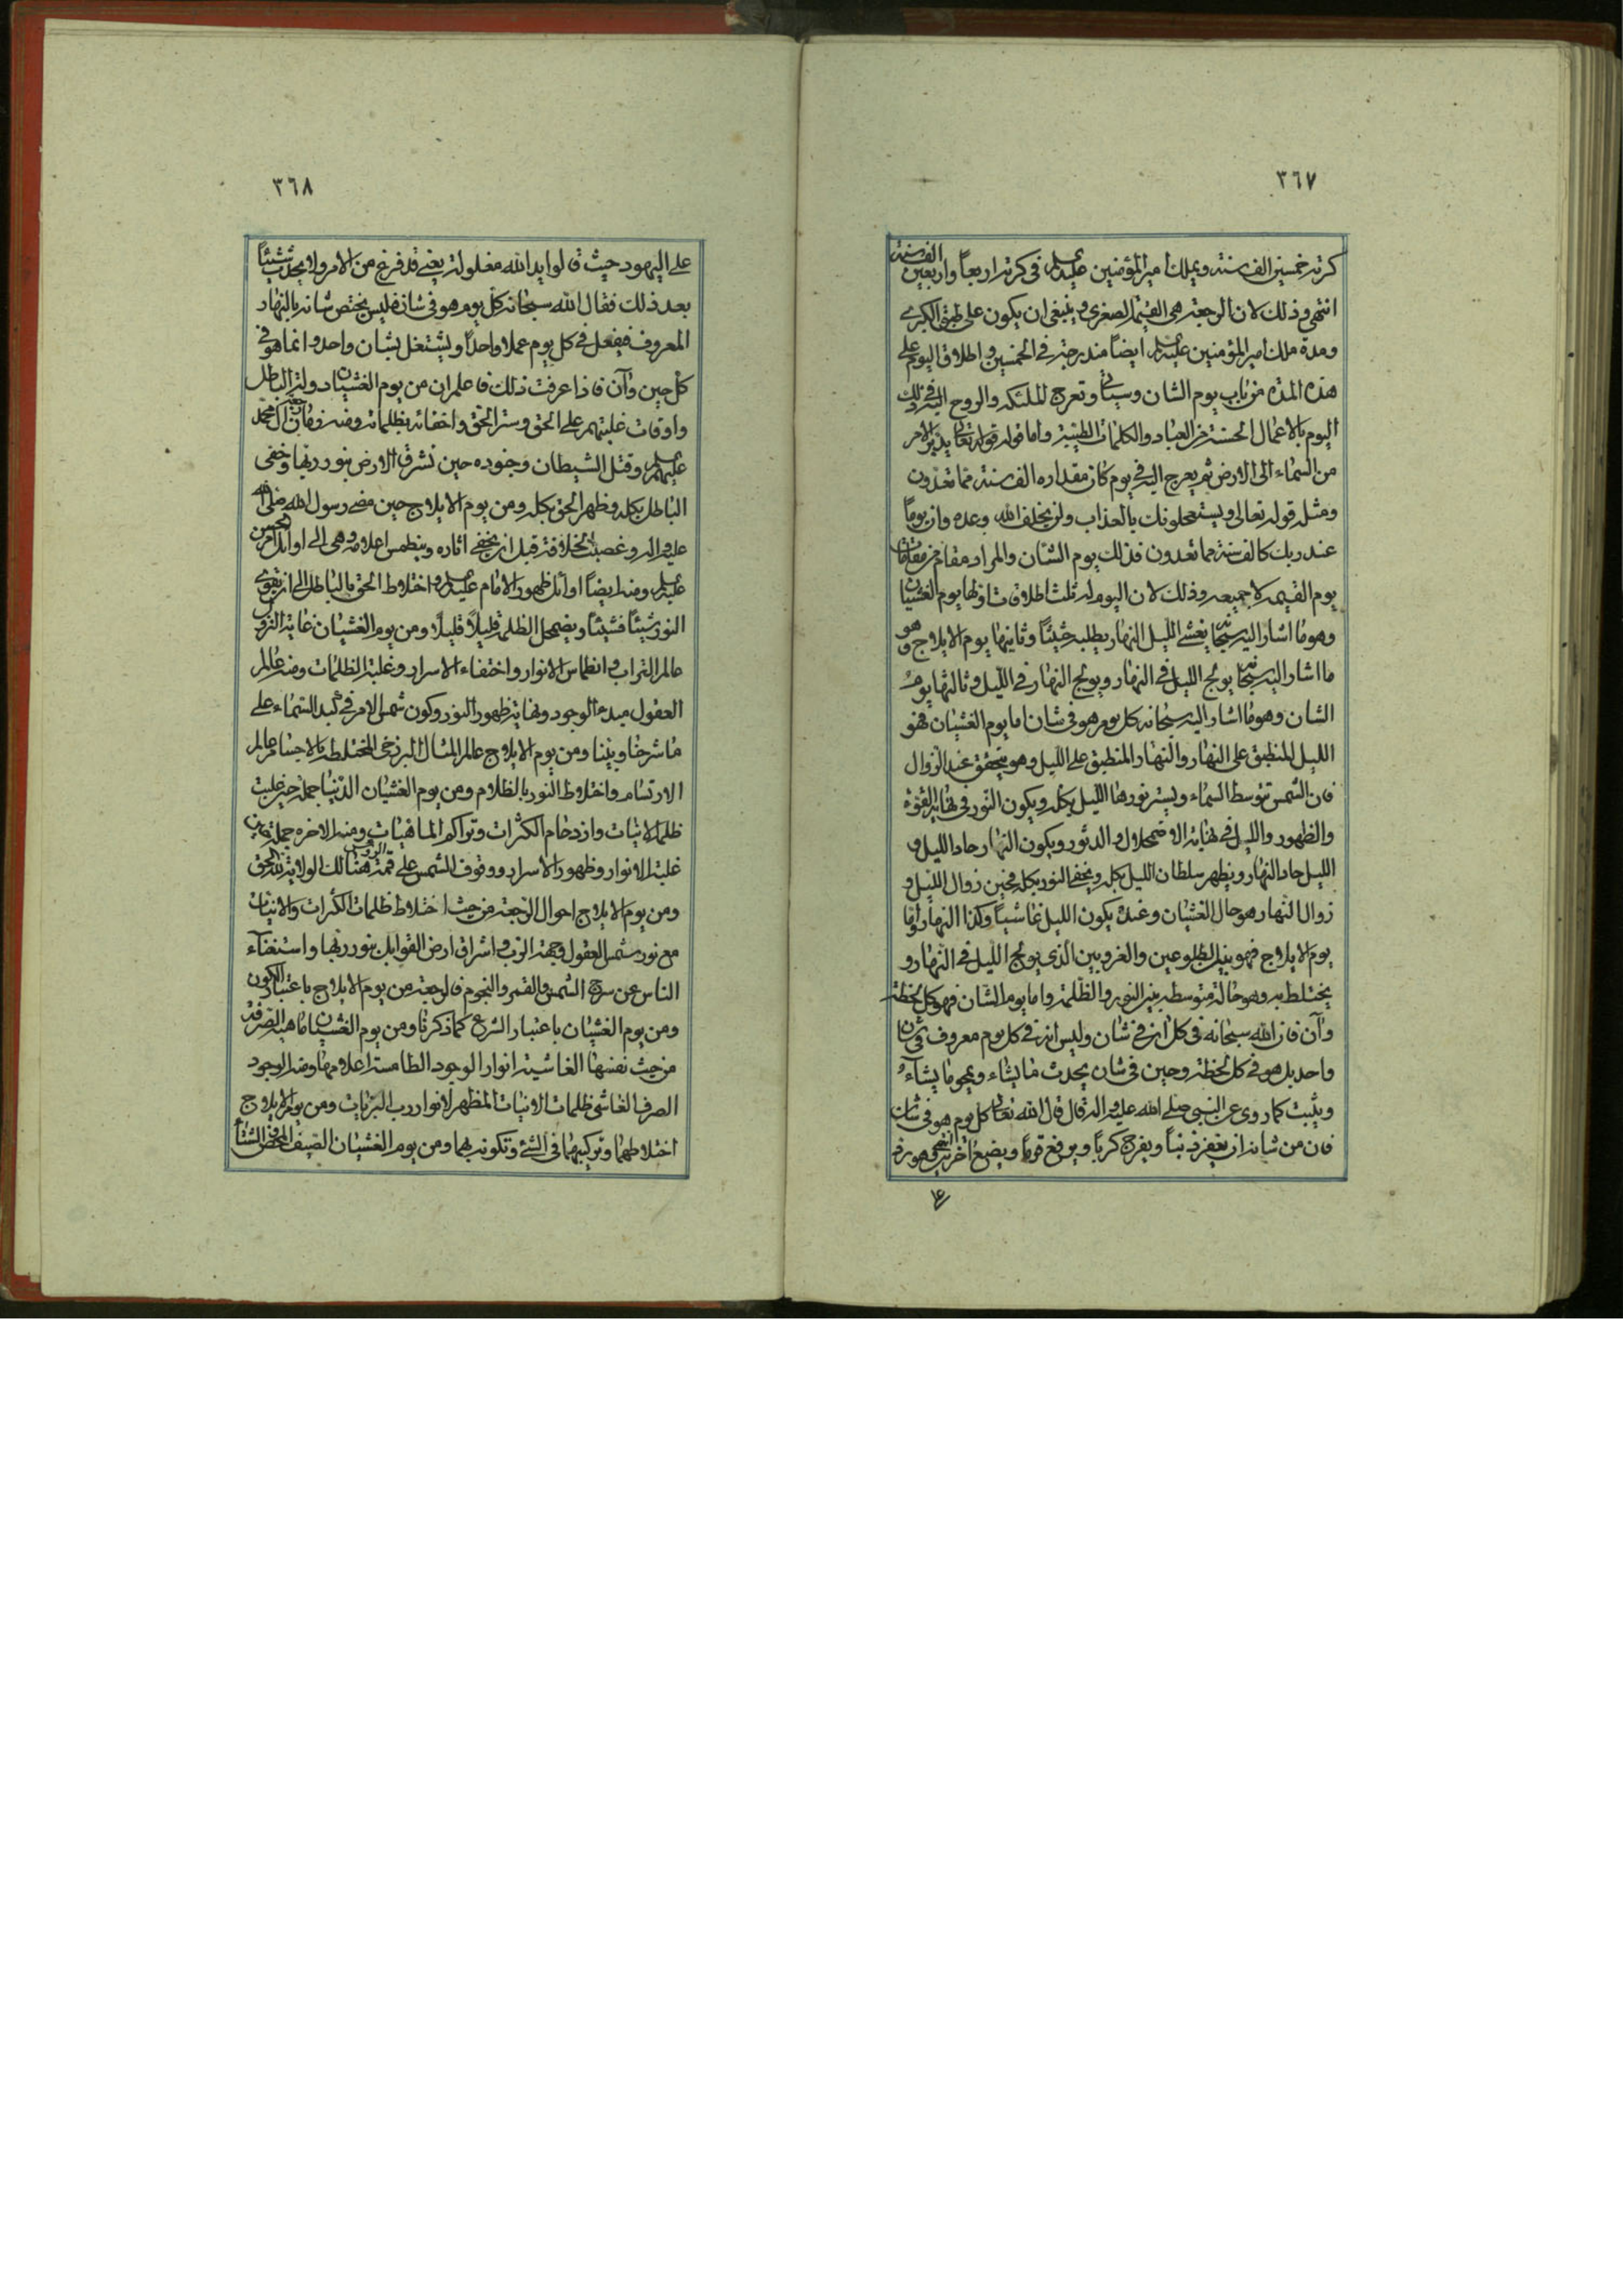 ٣٦٧
كرته خمسين الف سنة ويملك امير المؤمنين عليه السلم في كرته اربعاً واربعين الف سنة
انتهى وذلك لان الرجعة هي القيمة الصغرى وينبغي ان يكون على طبق الكبرى
ومدة ملك امير المؤمنين عليه السلم ايضاً مندرجة في الخمسين واطلاق اليوم على
هذه المدة من باب يوم الشان وسياتي وتعرج الملئكة والروح اليه في ذلك
اليوم بالاعمال الحسنة من العباد والكلمات الطيبة واما قوله قوله تعالى يدبر الامر
من السماء الى الارض ثم يعرج اليه في يوم كان مقداره الف سنة مما تعدون
ومثله قوله تعالى ويستعجلونك بالعذاب ولن يخلف الله وعده وان يوماً
عند ربك كالف سنة مما تعدون فذلك يوم الشان والمراد مقام من مقامات
يوم القيمة لا جميعه وذلك لان اليوم له ثلث اطلاقات اولها يوم الغشيان
وهو ما اشار اليه سبحانه يغشي الليل النهار يطلبه حثيثاً وثانيها يوم الايلاج وهو
ما اشار اليه سبحانه يولج الليل في النهار ويولج النهار في الليل وثالثها يوم
الشان وهو ما اشار اليه سبحانه كل يوم هو في شان اما يوم الغشيان فهو
الليل المنطبق على النهار والنهار المنطبق على الليل وهو يتحقق عند الزوال
فان الشمس تتوسط السماء ويستر نورها الليل بكله ويكون النور في نهاية القوة
والظهور والليل في نهاية الاضمحلال والدثور ويكون النهار حاد الليل و
الليل حاد النهار ويظهر سلطان الليل بكله ويخفي النور بكله فحين زوال الليل و
زوال النهار هو حال الغشيان وعنده يكون الليل غاشياً وكذا النهار واما
يوم الايلاج فهو بين الطلوعين والغروبين الذي يولج الليل في النهار و
يختلط به وهو حالة متوسطة بين النور والظلمة واما يوم الشان فهو كل لحظة
وآن فان الله سبحانه في كل ان في شان وليس انه في كل يوم معروف في شان
واحد بل هو في كل لحظة وحين في شان يحدث ما يشاء ويمحو ما يشاء
ويثبت كما روى عن النبي صلى الله عليه واله قال قال الله تعالى كل يوم هو في شان
فان من شانه ان يغفر ذنباً ويفرج كرباً ويرفع قوماً ويضع اخرين انتهى وهو رد
على
٣٦٨
على اليهود حيث قالوا يد الله مغلولة يعني قد فرغ من الامر ولا يحدث شيئاً
بعد ذلك فقال الله سبحانه كل يوم هو في شان فليس يختص شانه بالنهار
المعروف فيفعل في كل يوم عملا واحداً ويشتغل بشان واحد وانما هو في
كل حين وآن فاذا عرفت ذلك فاعلم ان من يوم الغشيان دولة الباطل
واوقات غلبتهم على الحق وستر الحق واخفائه بظلماته ومنه زمان رجعة آل محمد
عليهم السلم وقتل الشيطان وجنوده حين تشرق الارض بنور ربها وخفى
الباطل بكله وظهر الحق بكله ومن يوم الايلاج حين مضى رسول الله صلى الله
عليه واله وغصبت خلافته قبل ان يخفى اثاره وينطمس اعلامه وهي الى اوائل امر الحسن
عليه السلم ومنه ايضاً اوائل ظهور الامام عليه السلم واختلاط الحق بالباطل الى ان يقوى
النور شيئاً فشيئاً ويضمحل الظلمة قليلاً قليلاً ومن يوم الغشيان غاية النزول
عالم التراب وانطماس الانوار واختفاء الاسرار وغلبة الظلمات ومنه عالم
العقول مبدء الوجود ونهاية ظهور النور وكون شمس الامر في كبد السماء على
ما شرحنا وبينا ومن يوم الايلاج عالم المثال البرزخي المختلط بالاجسام عالم
الارتسام واختلاط النور بالظلام ومن يوم الغشيان الدنيا جملة حين غلبت
ظلمة الانيات وازدحام الكثرات وتراكم الماهيات ومنه الاخرة جملة حين
غلبة الانوار وظهور الاسرار ووقوف الشمس على قمة الرؤس هنالك الولاية لله الحق
ومن يوم الايلاج احوال الرجعة من حيث اختلاط ظلمات الكثرات والانيات
مع نور شمس العقول وجهة الرب واشراق ارض القوابل بنور ربها واستغناء
الناس عن سرج الشمس والقمر والنجوم فالرجعة من يوم الايلاج باعتبار الكون
ومن يوم الغشيان باعتبار الشرع كما ذكرنا ومن يوم الغشيان الماهية الصرفة
من حيث نفسها الغاشية انوار الوجود الطامسة اعلامها ومنه الوجود
الصرف الغاشي ظلمات الانيات المظهر لانوار رب البريات ومن يوم الايلاج
اختلاطهما وتركيبهما في الشئ وتكونه بهما ومن يوم الغشيان الصيف المحض والشتاء